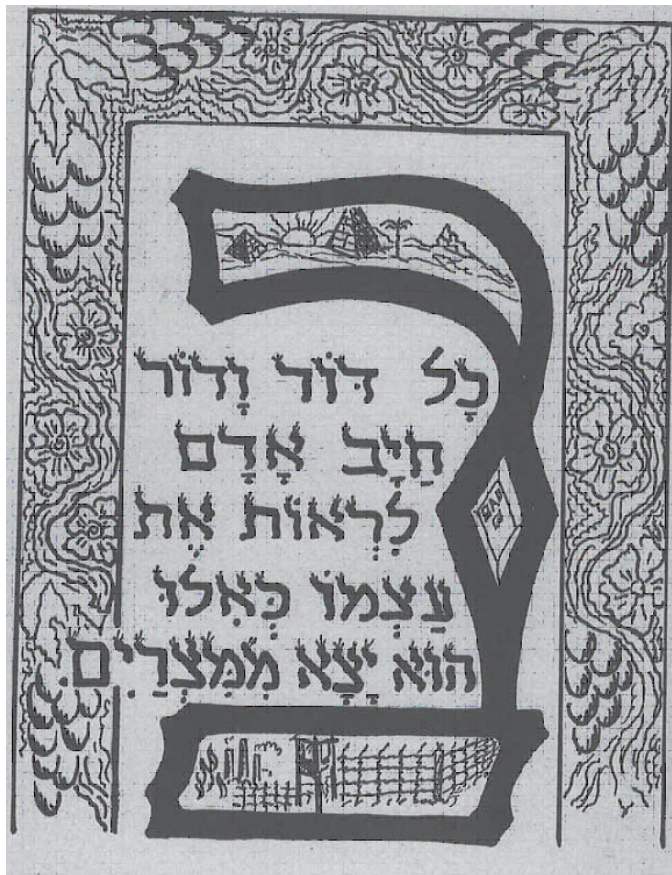 ב
כָל דּוֹר וָדוֹר
חַיָב אָדָם
לִרְאוֹת אֶת
עַצְמוֹ כְּאִלוּ
הוּא יָצָא מִמִצְרַיִם.